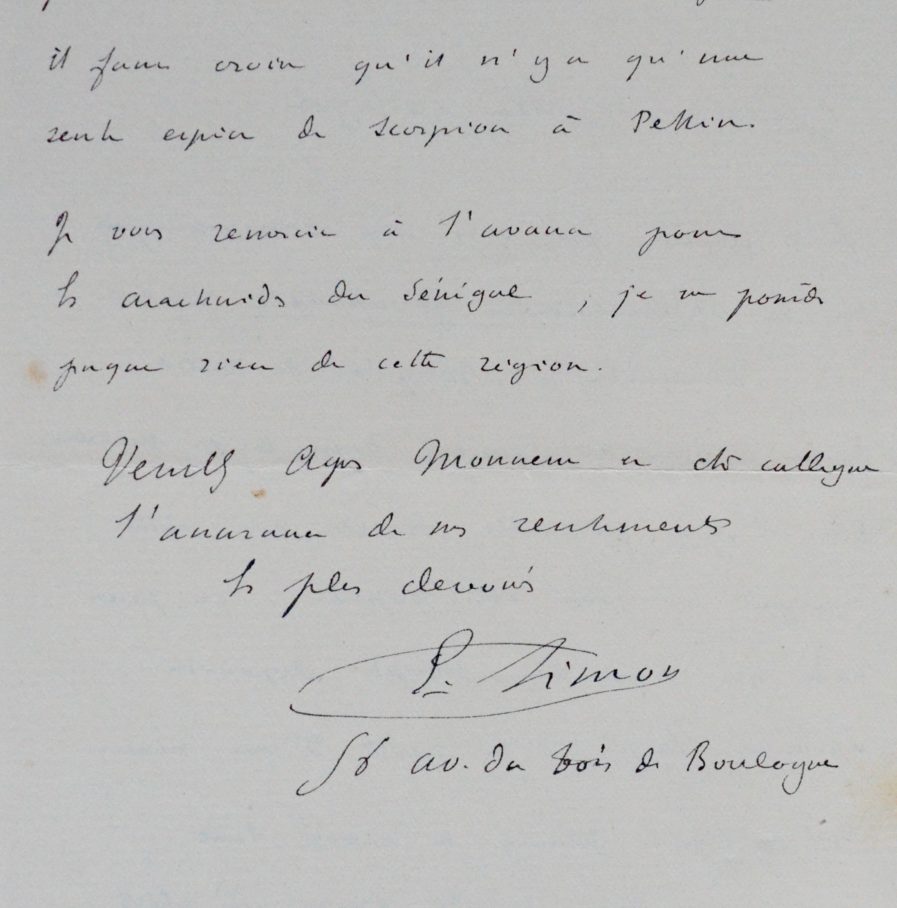 il faut croire qu'il n'y a qu'une
seule espèce de scorpion à Pekin.
Je vous remercie à l'avance pour
les arachnides du Sénégal, je ne possède
presque rien de cette région.
Veuillez agréer Monsieur et cher collègue
l'assurance de mes sentiments
les plus dévoués
E. Simon
56 av. du bois de Boulogne